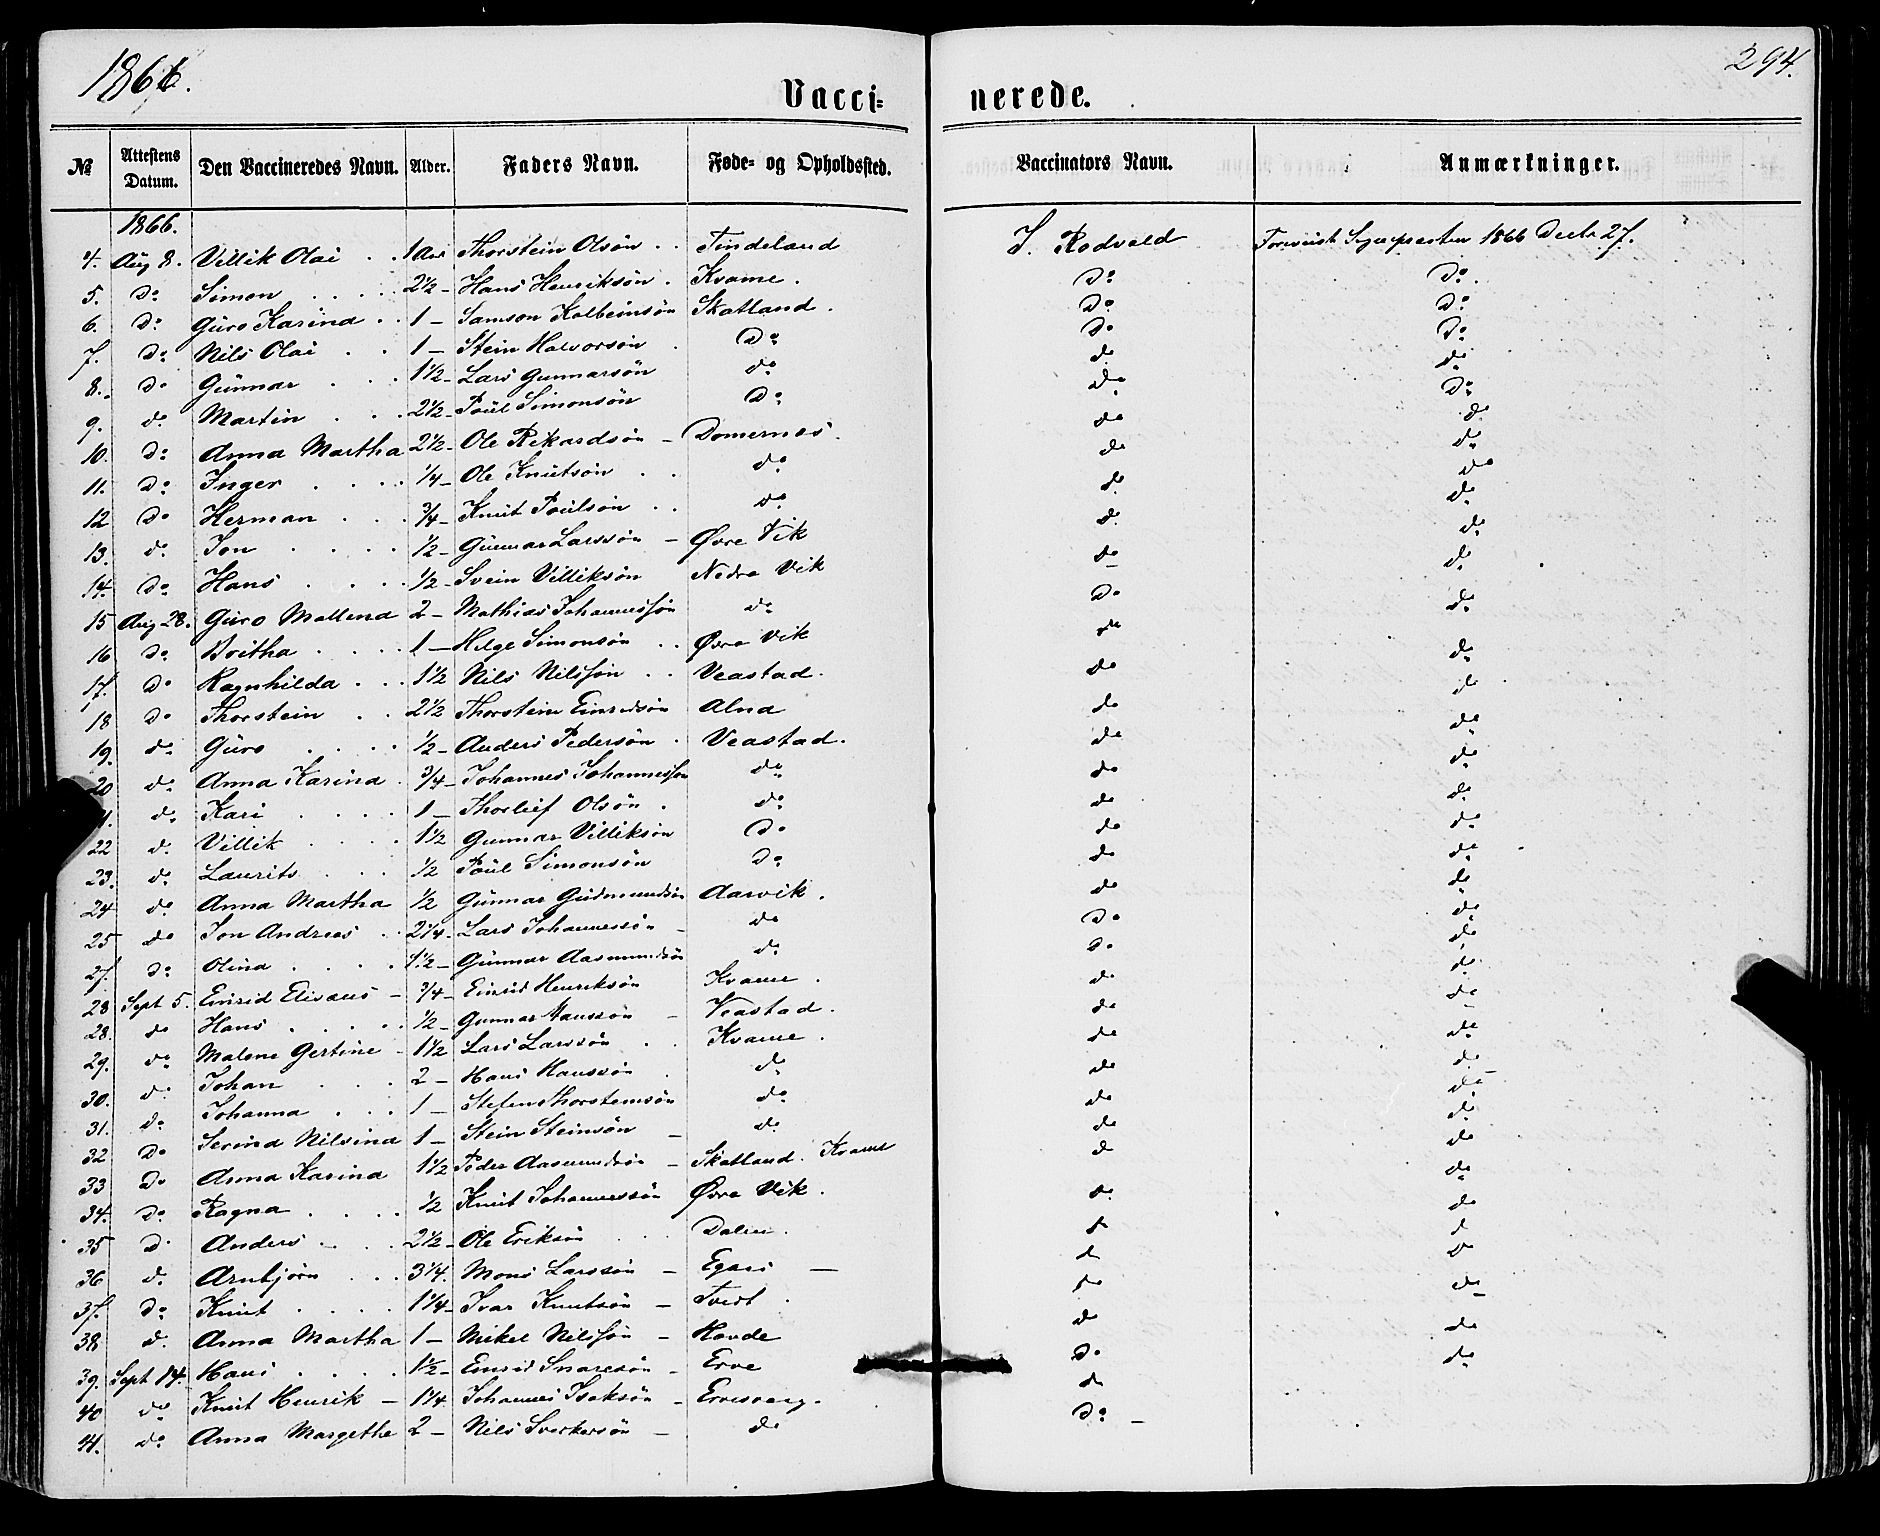 1866. Vacci= nerede. 294.
№ Attestens Datum. Den Vaccineredes Navn. Alder. Faders Navn. Føde= og Opholdssted. Vaccinators Navn. Anmærkninger.
1866.
4. Aug 8. Villik Olai . . 1 Thorstein Olsön . . Tindeland J. Rodvald 1866 27.
5. do Simon . . . . 2½ – Hans Henriksön . Kvame . Do Do .
6. do Guro Karina . . 1 – Samson Kolbeinsön Skatland . Do Do
7. do Nils Olai . . 1 – Stein Halvorsön . Do Do Do
8. do Günnar . . . 1½ – Lars Gunnarsön do do do
9. do Martin . . . 2½ – Poül Simonsön Do do Do
10. do Anna Martha 2½ – Ole Rikardsön – Domernes . do do
11. do Inger . . . . ¼ – Ole Knütsön . . do do do
12 do Herman . . . ¾ – Knut Poülsön . . do do do
13. do Jon . . . . ½ – Günnar Larssön – Øvre Vik do do
14. do Hans . . . . ½ – Svein Villiksön Nedre Vik do do
15 Aug 28. Guro Mallena 2 – Mathias Johannessön do do do
16 do Britha . . . . 1 – Helge Simonsön . . Øvre Vik do do
17. do Ragnhilda . . . 1½ Nils Nilssön . . Veastad . do do
18 do Thorstein . . 2½ Thorstein Einridsön Alna do do
19. do Güro . . . . ½ – Anders Pedersön . Veastad . do do
20 do Anna Karina . ¾ – Johannes Johannessön do do do
1. do Kari . . . . 1 – Thorleif Olsön . do do do
22 do Villik . . . . 1½ Gunnar Villiksön Do do do
23. do Laurits . . . ½ Poül Simonsön Do do do
24 do Anna Martha ½ Günnar Gudmundsön Aarvik . do do
25 do Jon Andreas . 2¼ – Lars Johannessön – do do do
27. do Olina . . . . 1½ – Günnar Aasmundsön do do do
28 Sept 5. Einrid Elisæus – ¾ – Einrid Henriksön Kvame . do do
28. do Hans . . . . . ½ – Gunnar Hanssön – Veastad . do do
29. do Malene Gertine – 1½ Lars Larssön . . Kvame . do do
30. do Johan . . . 2 – Hans Hanssön . do do do
31. do Johanna . . . 1 – Stefen Thorsteinsön do do do
32 do Serina Nilsina 1 – Stein Steinsön – do do do
33 do Anna Karina 1½ Peder Aasmundsön – Skatland . Kvame do do
34. do Ragna . . . . ½ Knut Johannessön Øvre Vik . do do
35 do Anders – . . 2½ – Ole Eriksön . . Dalen . do do
36 do Arnbjörn . . . 3¼. Mons Larssön – – do do
37. do Knut . . . . 1¼ – Ivar Knutsön – Tveit . do do
38 do Anna Martha 1 – Mikel Nilssön – Havde do do
39. Sept 14. Hans . . . . 1½ – Einrid Snaresön – Erve Do do
40 do Knut Henrik – 1¼ Johannes Isaksön – do
41. do Anna Margethe 2 – Nils Sverkersön – do Do –